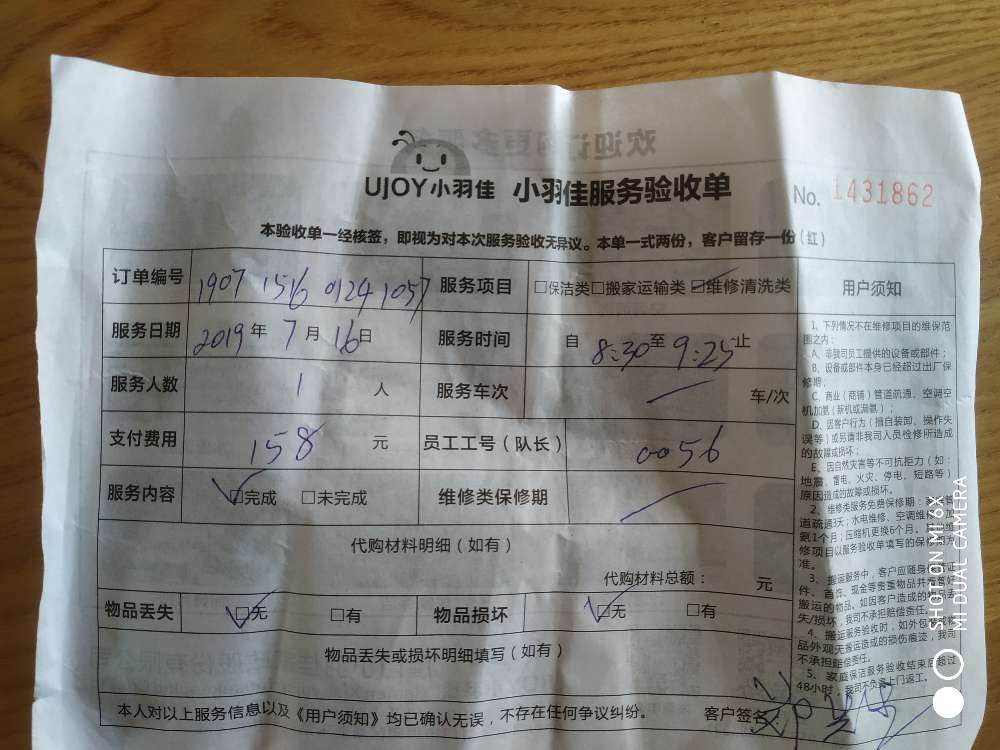 UJOY小羽佳 小羽佳服务验收单 No. 1431862
本验收单一经核签，即视为对本次服务验收无异议。本单一式两份，客户留存一份（红）
订单编号 1907 1516 0124 1057 服务项目 □保洁类□搬家运输类☑维修清洗类
服务日期 2019年 7月 16日 服务时间 自 8:30至 9:25止
服务人数 1 人 服务车次 车/次
支付费用 158 元 员工工号（队长） 0056
服务内容 ☑完成 □未完成 维修类保修期
代购材料明细（如有）
代购材料总额： 元
物品丢失 ☑无 □有 物品损坏 ☑无 □有
物品丢失或损坏明细填写（如有）
本人对以上服务信息以及《用户须知》均已确认无误，不存在任何争议纠纷。 客户签名：
用户须知
1、下列情况不在维修项目的维保范
围之内：
A、非我司员工提供的设备或部件；
B、设备或部件本身已经超过出厂保
修期；
C、商业（商铺）管道疏通、空调空
机加氨（新机或漏氨）；
D、因客户行为（擅自装卸、操作失
误等）或另请非我司人员检修所造成
的故障或损坏；
E、因自然灾害等不可抗拒力（如：
地震、雷电、火灾、停电、短路等）
原因造成的故障或损坏。
2、维修类服务免费保修期：
道疏通3天；水电维修、空调维修
氨1个月；压缩机更换6个月。
修项目以服务验收单填写的保修期为
准。
3、搬运服务中，客户应随身
件、首饰、现金等贵重物品并
搬运的物品。如因客户造成的物品丢
失/损坏，我司不承担赔偿责任。
4、搬运服务验收时，如外包
品外观无搬运造成的损伤痕迹，我司
不承担赔偿责任。
5、家庭保洁服务验收结束后超过
48小时，我司不负责上门返工。
SHOT ON MI 6X
MI DUAL CAMERA